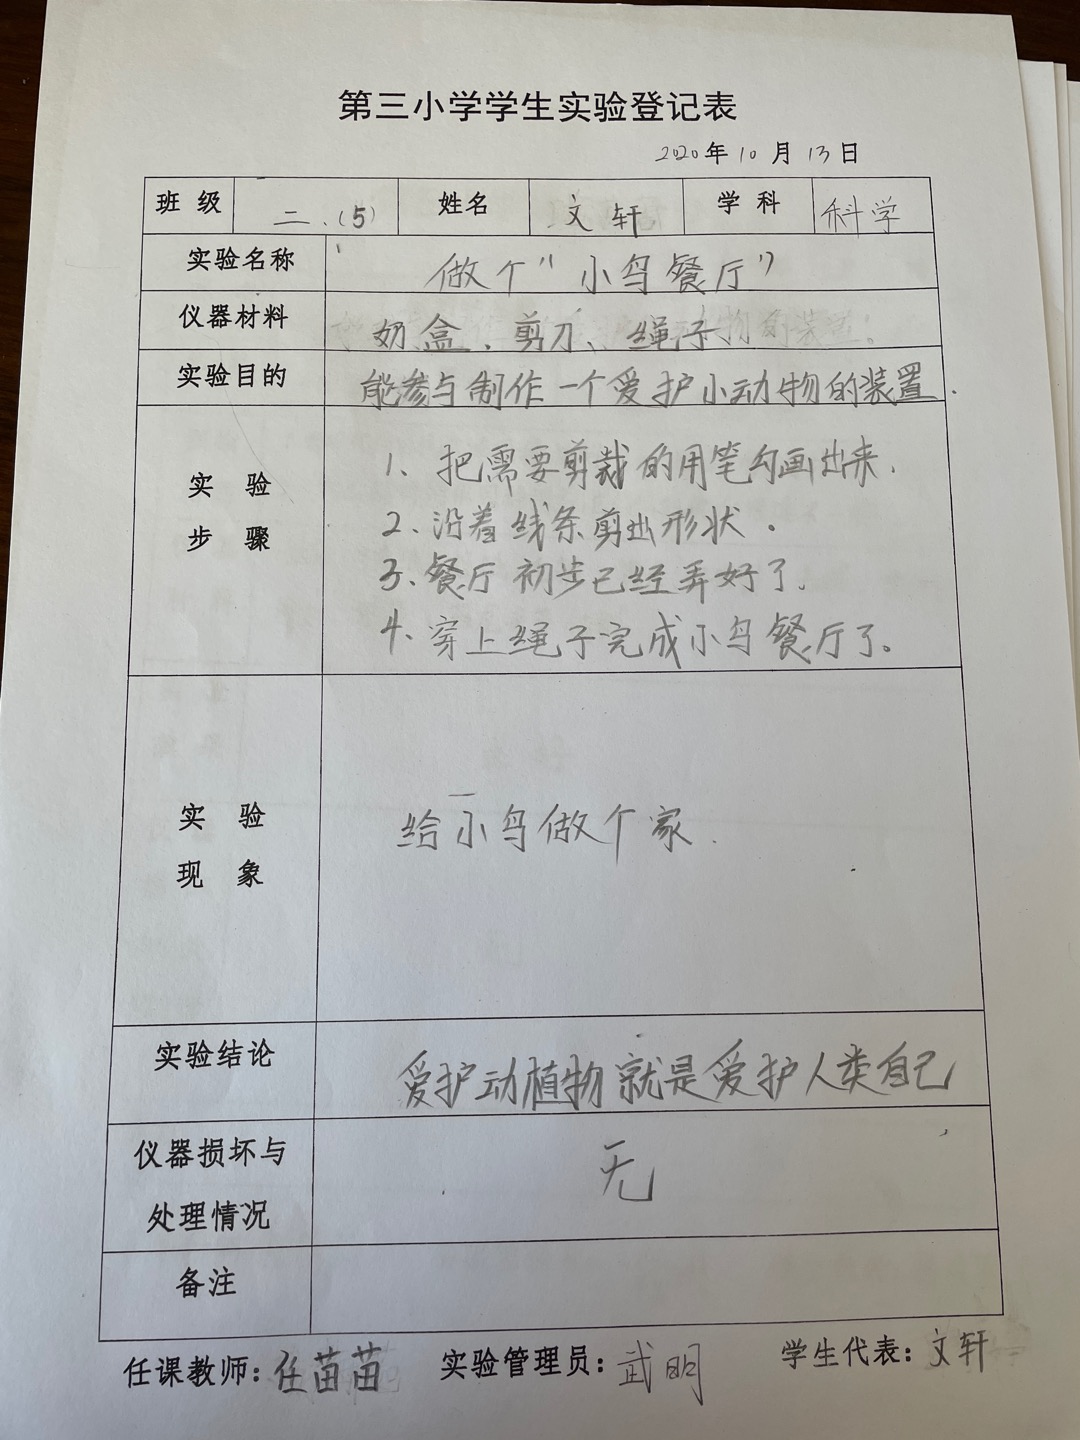 第三小学学生实验登记表
2020年10月13日
班 级 二.(5) 姓名 文轩 学 科 科学
实验名称 做个“小鸟餐厅”
仪器材料 奶盒、剪刀、绳子
实验目的 能参与制作一个爱护小动物的装置.
实 验
步 骤
1、把需要剪裁的用笔勾画出来.
2、沿着线条剪出形状。
3、餐厅初步已经弄好了.
4、穿上绳子完成小鸟餐厅了。
实 验
现 象
给小鸟做个家.
实验结论 爱护动植物就是爱护人类自己
仪器损坏与
处理情况
无
备注
任课教师:任苗苗 实验管理员:武明 学生代表:文轩